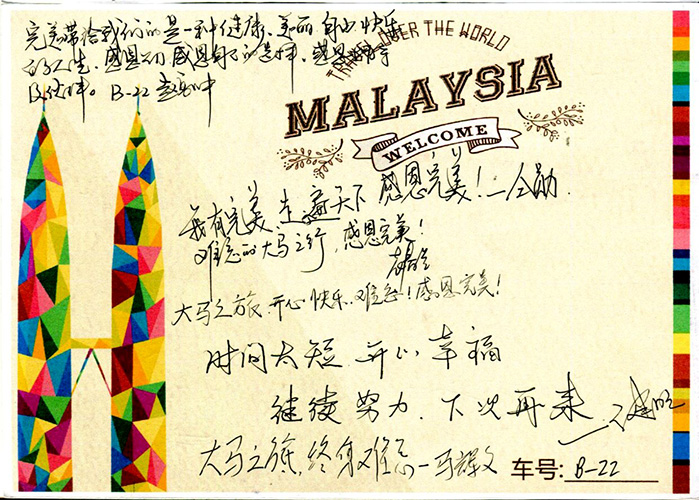 完美带给我们的是一种健康、美丽、自由快乐
的人生. 感恩 感恩 的选择. 感恩
及伙伴。 B-22
TRAVEL OVER THE WORLD
MALAYSIA
WELCOME
我有完美 走遍天下 感恩完美!
难忘的大马之行, 感恩完美!
大马之旅. 开心 快乐. 难忘! 感恩完美!
时间太短. 开心. 幸福
继续努力. 下次再来
大马之旅, 终身难忘 — 马
车号: B-22